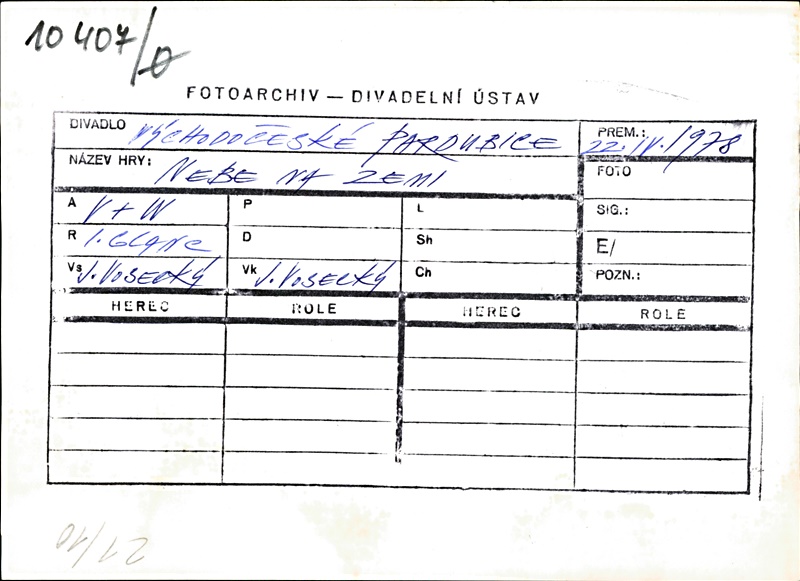 10 407/0
FOTOARCHIV — DIVADELNÍ ÚSTAV
DIVADLO VÝCHODOČESKÉ PARDUBICE PREM.: 22.IV.1978
NÁZEV HRY: NEBE NA ZEMI FOTO
A V+W P L SIG.:
R I. GLANC D Sh E/
Vs J. VOSECKÝ Vk J. VOSECKÝ Ch POZN.:
HEREC ROLE HEREC ROLE